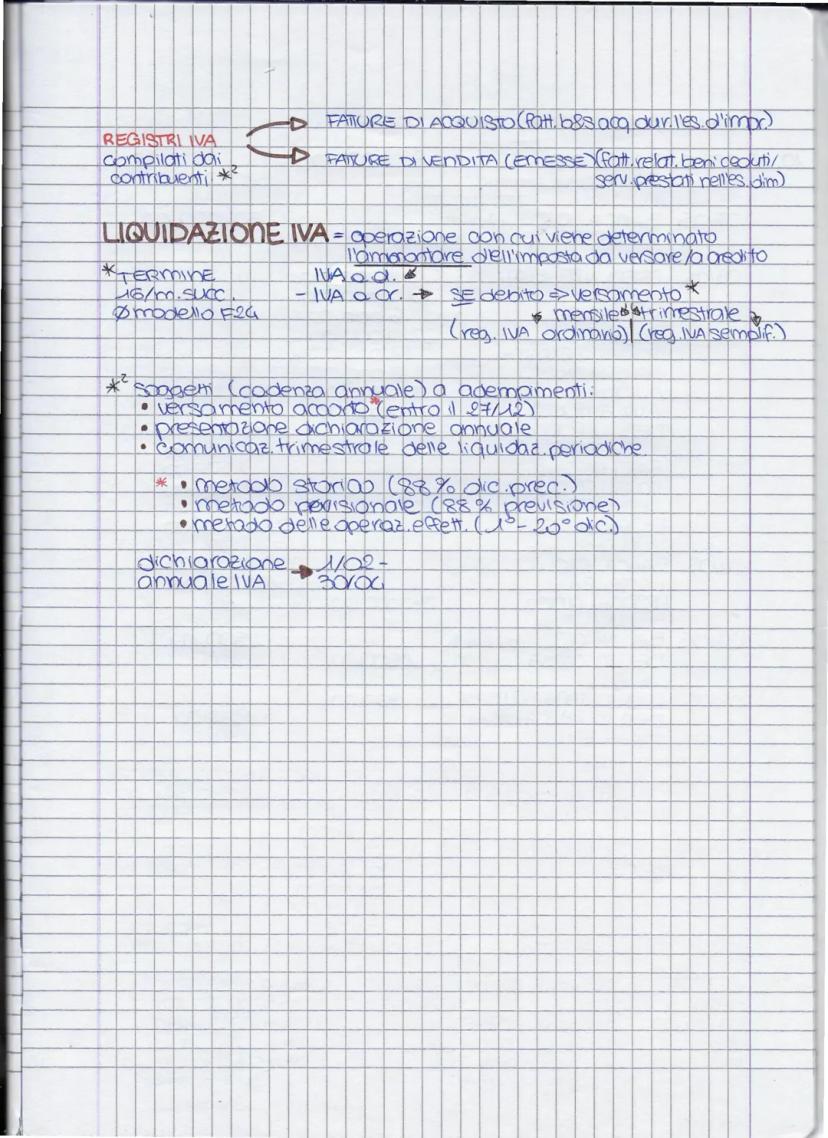 FATTURE DI ACQUISTO (fatt. b&s acq. dur. l'es. d'impr.)
REGISTRI IVA
compilati dai
contribuenti *²
FATTURE DI VENDITA (EMESSE) (fatt. relat. beni ceduti/
serv. prestati nell'es. d'im)
LIQUIDAZIONE IVA = operazione con cui viene determinato
l'ammontare dell'imposta da versare/a credito
*TERMINE
16/m. succ.
Ø modello F24
IVA a d.
- IVA a cr. → SE debito ⇒ versamento *
mensile trimestrale
(reg. IVA ordinario) | (reg. IVA semplif.)
*² soggetti (cadenza annuale) a adempimenti:
• versamento acconto * (entro il 27/12)
• presentazione dichiarazione annuale
• comunicaz. trimestrale delle liquidaz. periodiche
* • metodo storico (88% dic. prec.)
• metodo previsionale (88% previsione)
• metodo delle operaz. effett. (1° - 20° dic.)
dichiarazione → 1/02 -
annuale IVA 30/04